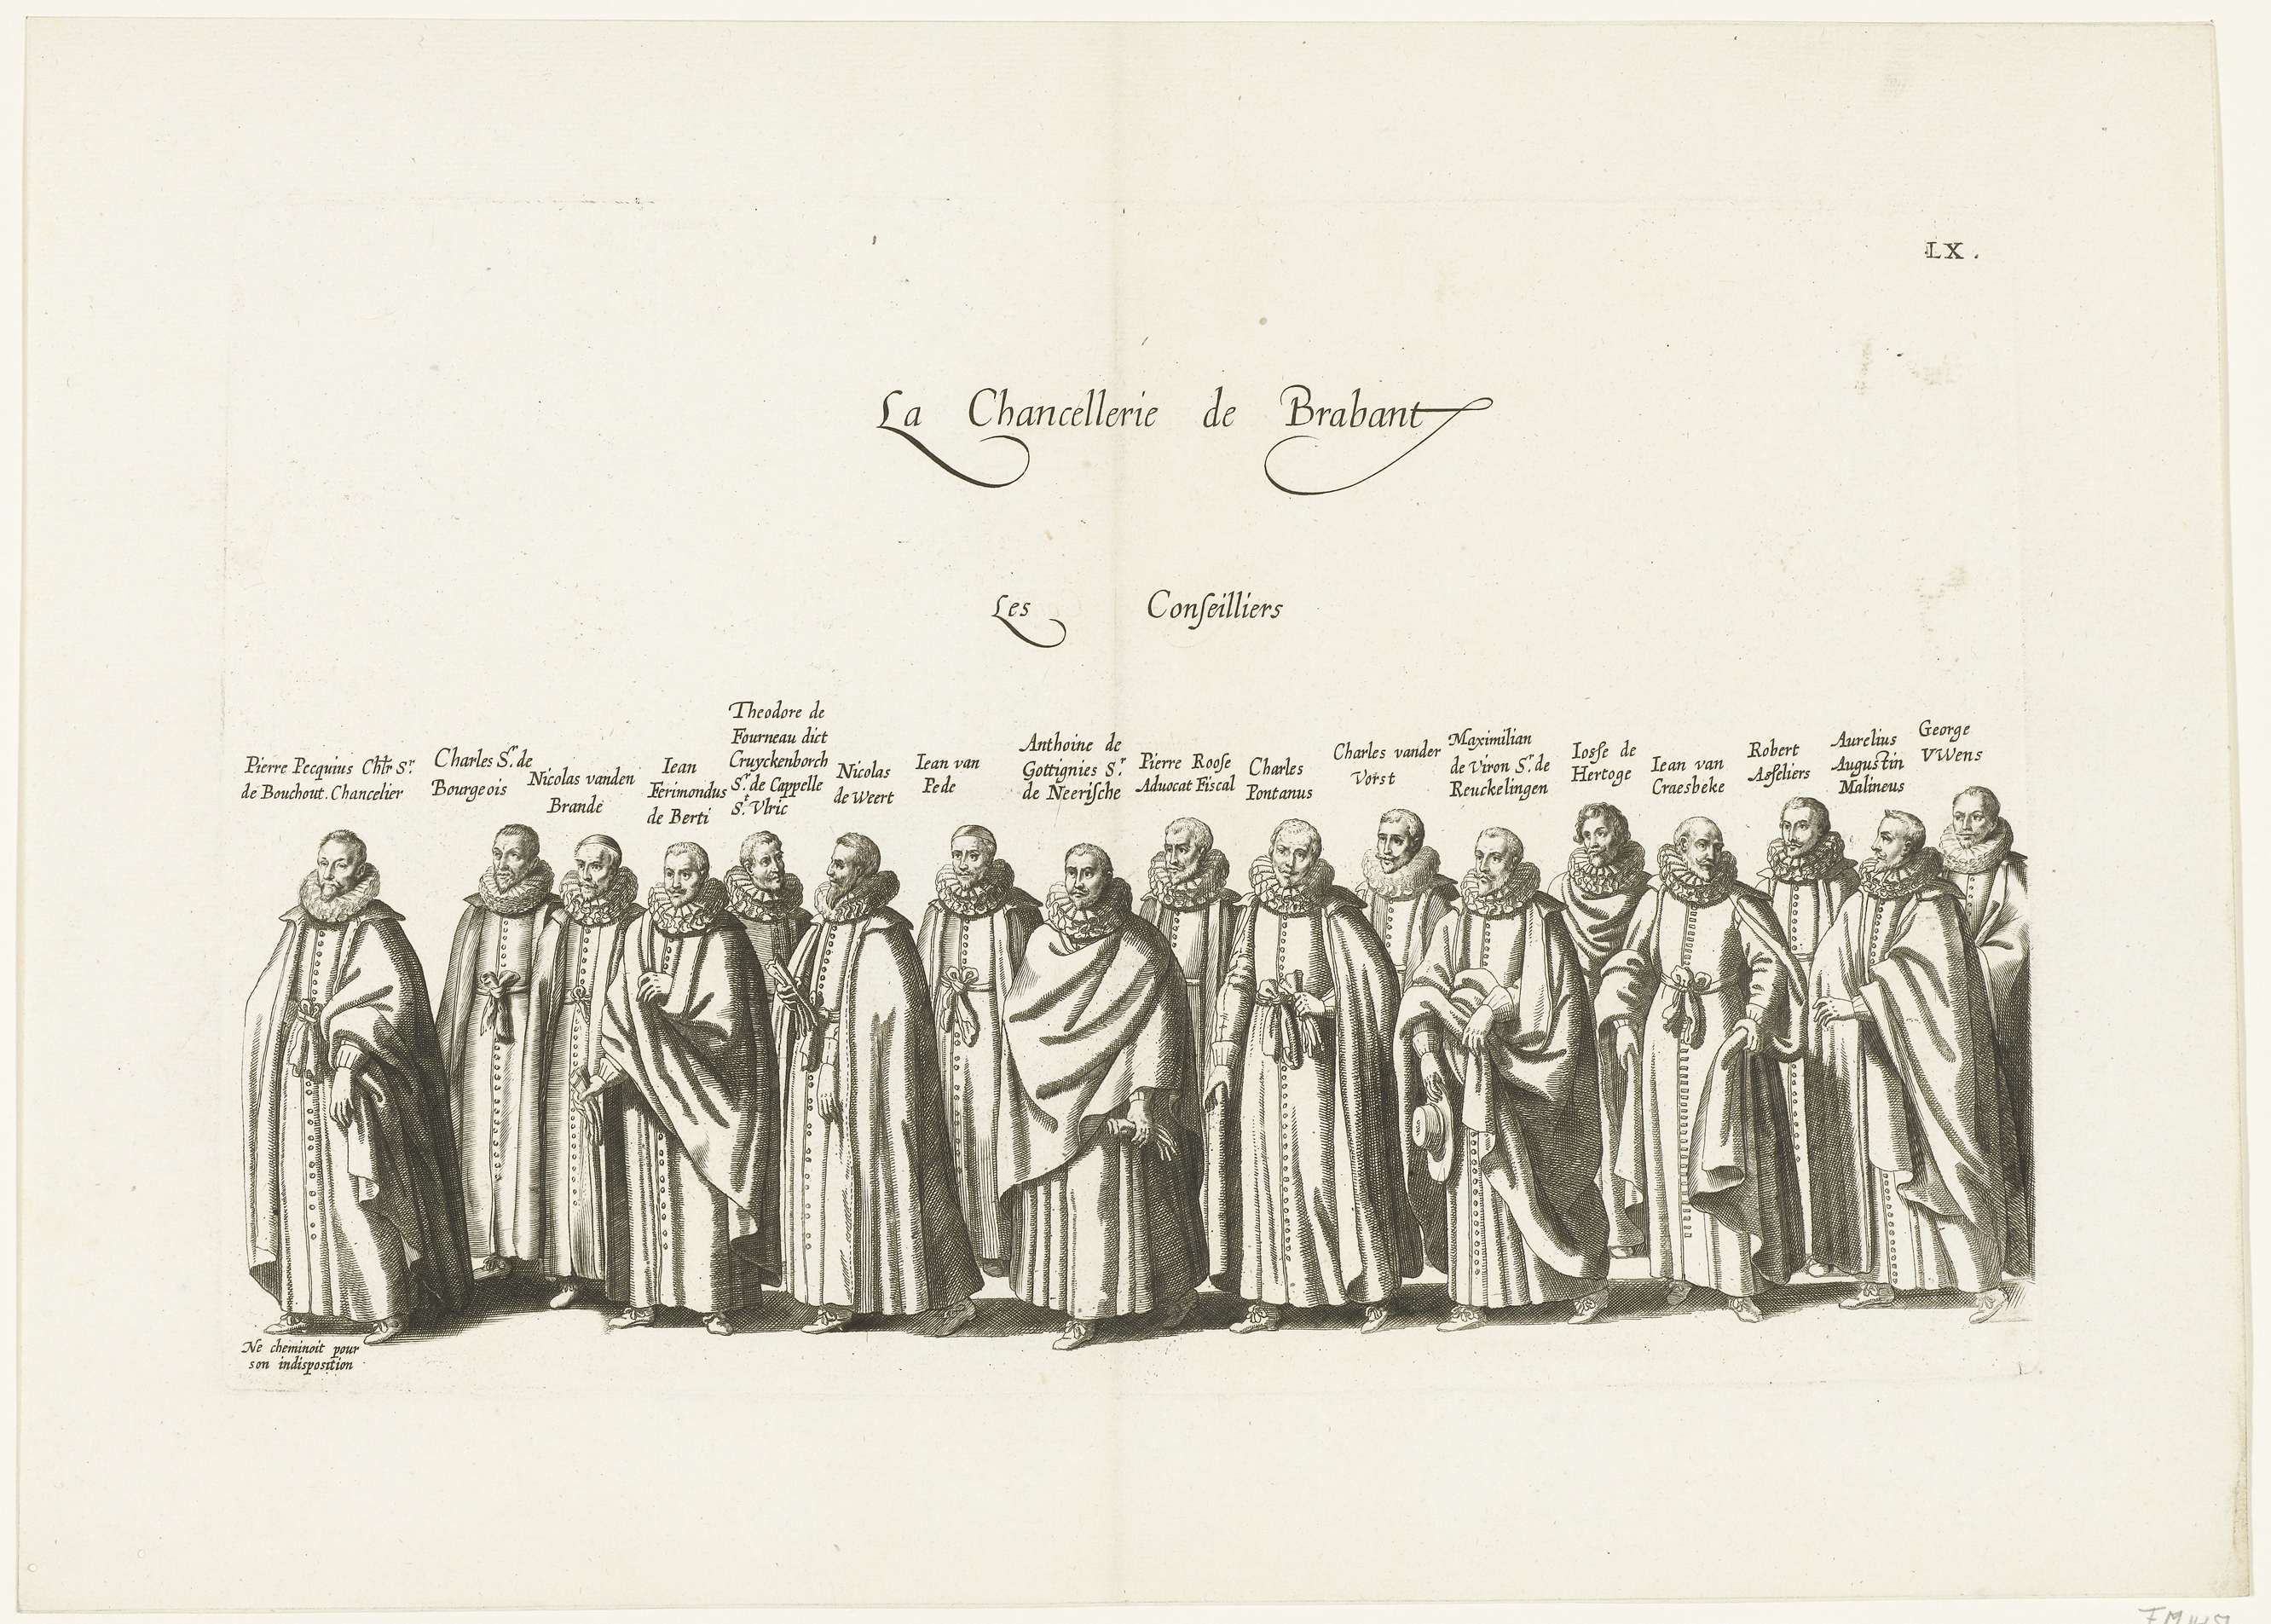 LX.
La Chancellerie de Brabant
Les Conſeilliers
Pierre Pecquius Chlr Sr.
de Bouchout. Chancelier
Charles Sr. de
Bourgeois
Nicolas vanden
Brande
Iean
Ferimondus
de Berti
Theodore de
Fourneau dict
Cruyckenborch
Sr. de Cappelle
St. Vlric
Nicolas
de Weert
Iean van
Pede
Anthoine de
Gottignies Sr.
de Neeriſche
Pierre Rooſe
Aduocat Fiscal
Charles
Pontanus
Charles vander
Vorst
Maximilian
de Viron Sr. de
Reuckelingen
Ioſse de
Hertoge
Iean van
Craesbeke
Robert
Aſseliers
Aurelius
Augustin
Malineus
George
VWens
Ne cheminoit pour
son indisposition